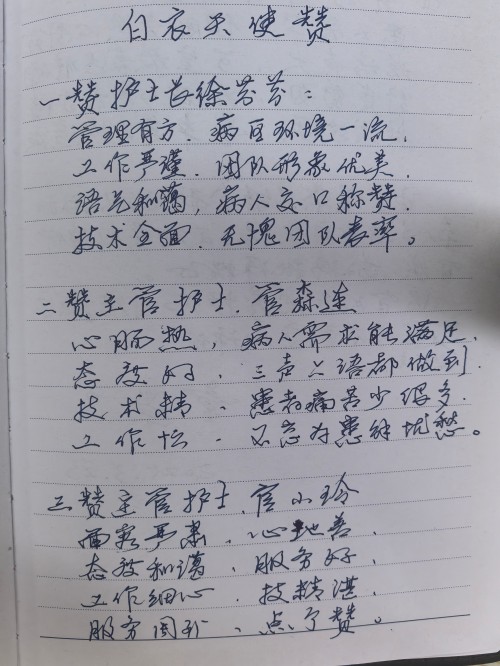 白衣天使赞
一赞护士长徐芬芬：
管理有方、病区环境一流、
工作严谨、团队形象优美、
语言和蔼，病人交口称赞、
技术全面、无愧团队表率。
二赞主管护士、官森连
心肠热，病人需求能满足、
态度好、三声六语都做到、
技术精、患者痛苦少很多、
工作忙、不忘为患解忧愁。
三赞主管护士、官小玲
面容严肃、心地善、
态度和谐、服务好、
工作细心、技精湛、
服务周到、点个赞。